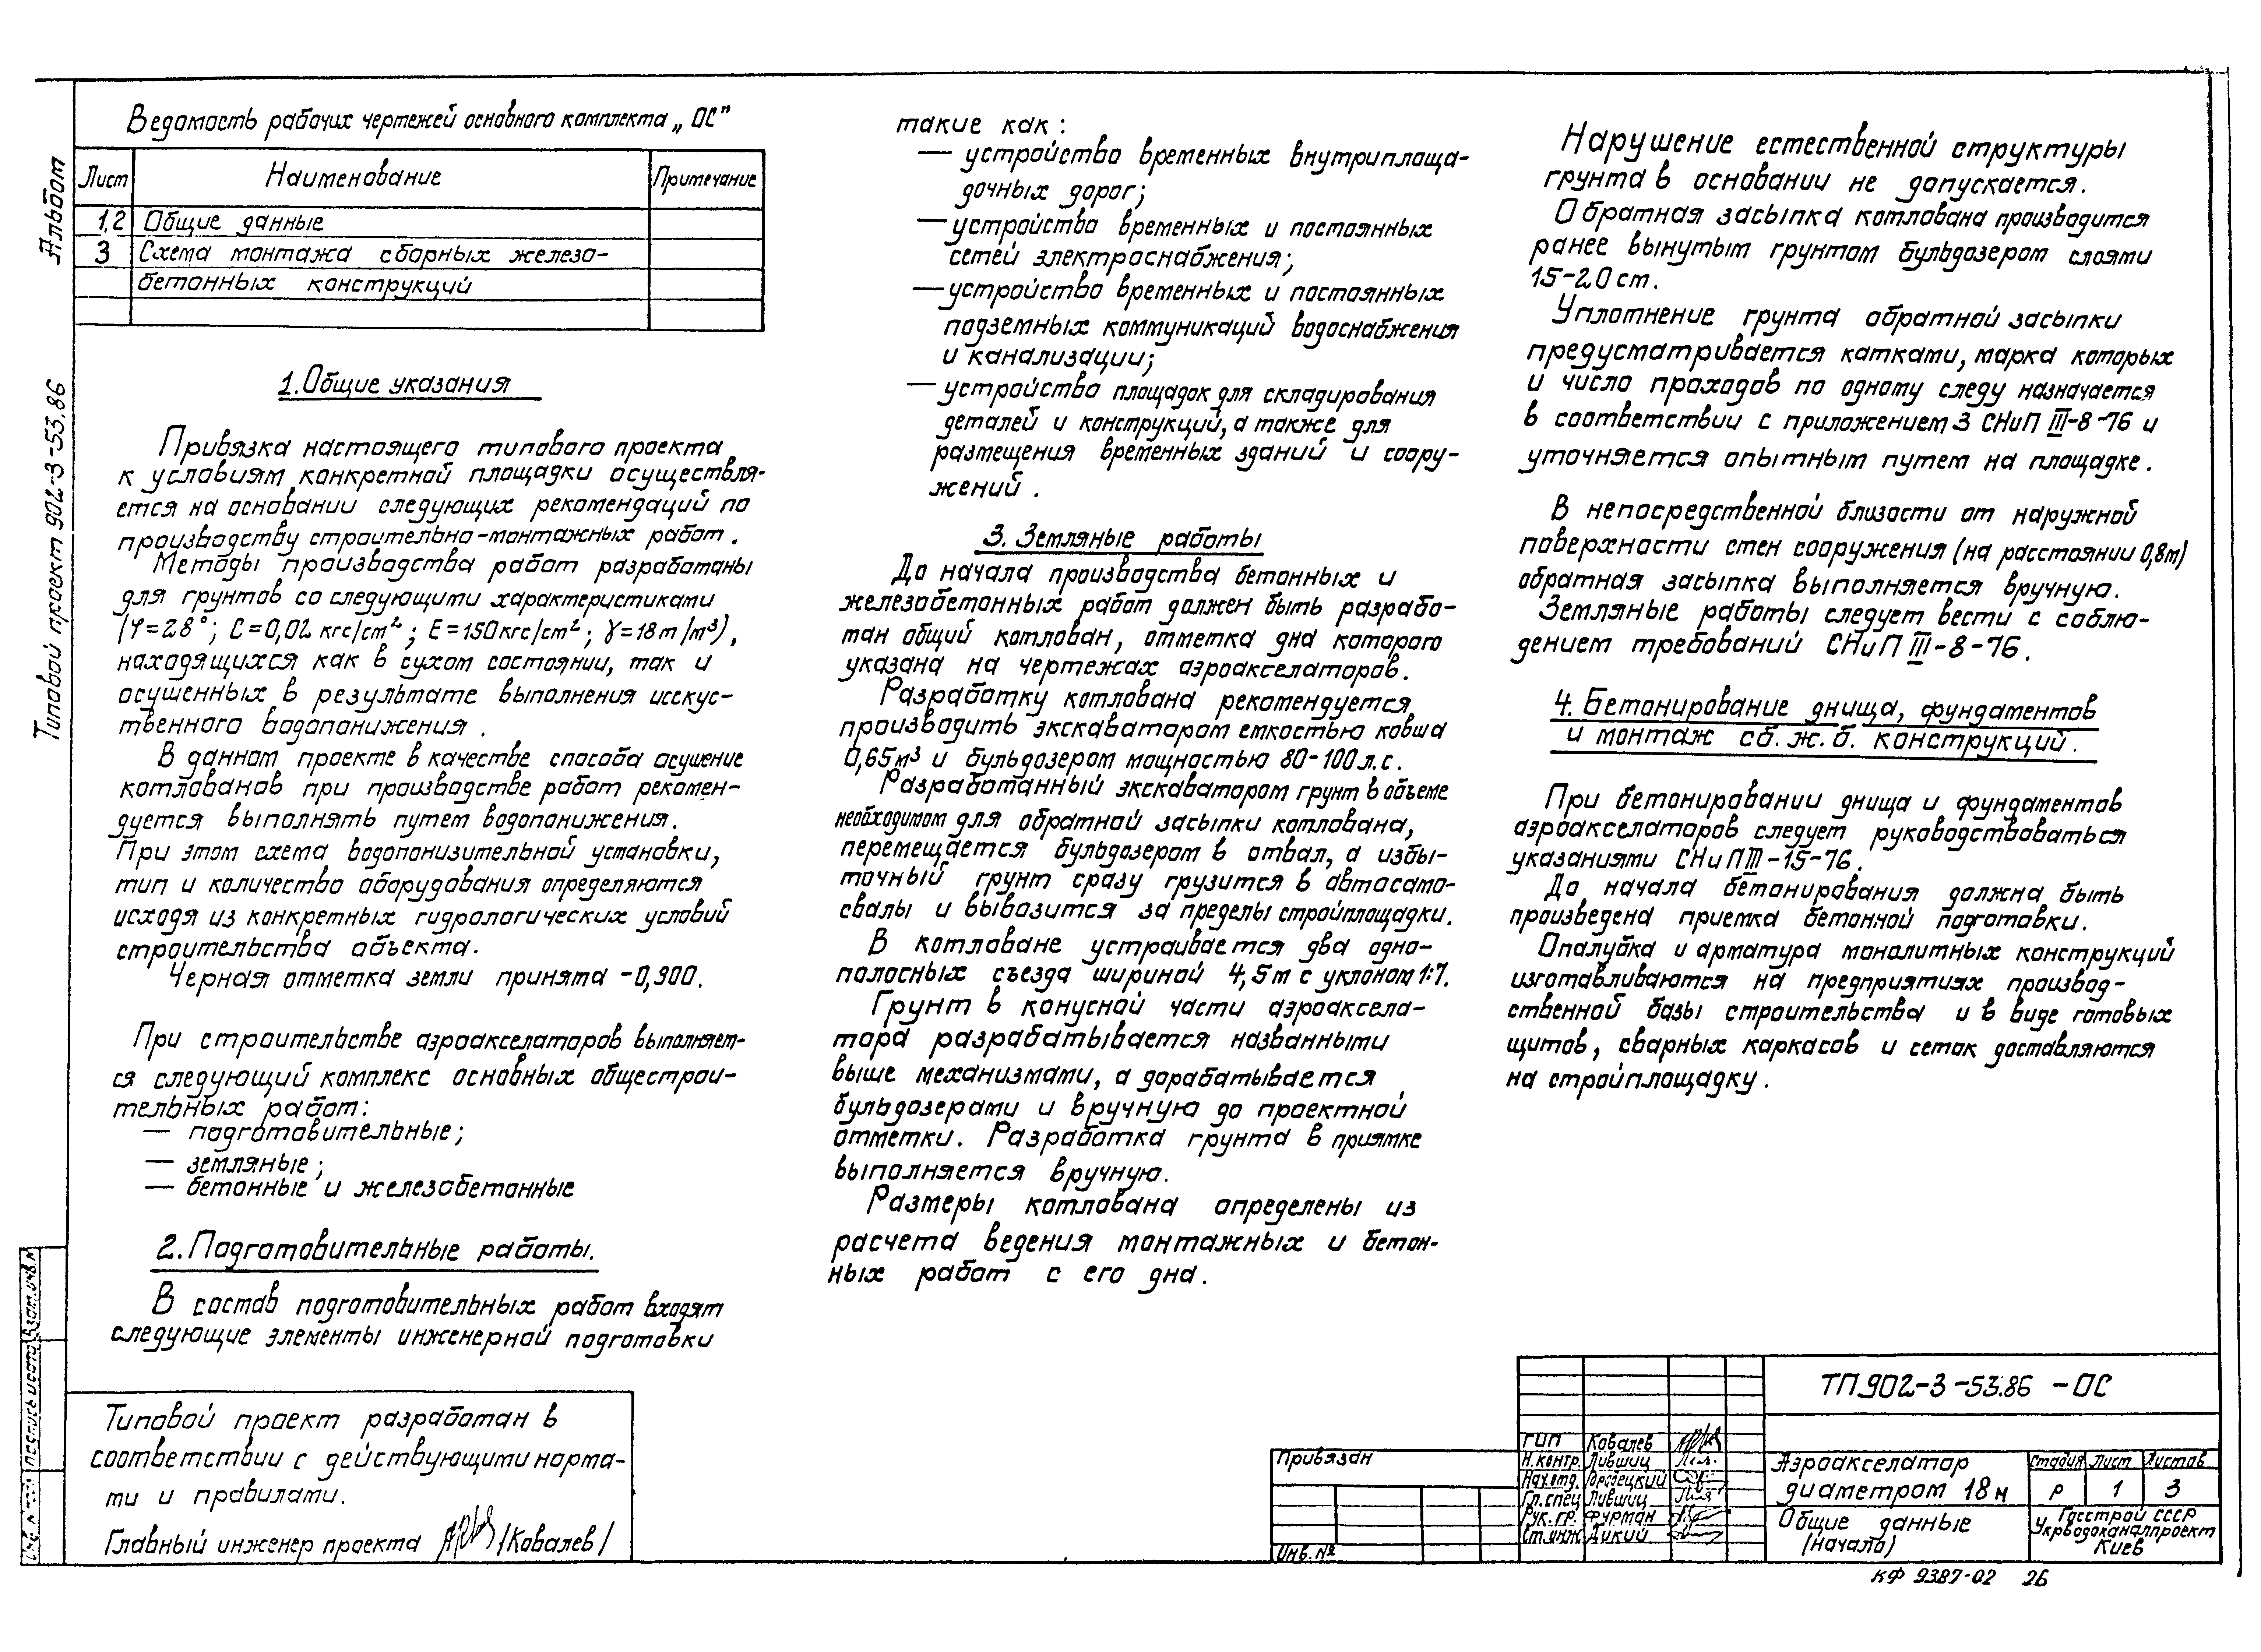 Альбом
Типовой проект 902-3-53.86
Ведомость рабочих чертежей основного комплекта „ОС"
Лист Наименование Примечание
1,2 Общие данные
3 Схема монтажа сборных железо-
бетонных конструкций
1. Общие указания
Привязка настоящего типового проекта
к условиям конкретной площадки осуществля-
ется на основании следующих рекомендаций по
производству строительно-монтажных работ.
Методы производства работ разработаны
для грунтов со следующими характеристиками
(φ=28°; C=0,02 кгс/см²; E=150кгс/см²; γ=18т/м³),
находящихся как в сухом состоянии, так и
осушенных в результате выполнения исскус-
ственного водопонижения.
В данном проекте в качестве способа осушение
котлованов при производстве работ рекомен-
дуется выполнять путем водопонижения.
При этом схема водопонизительной установки,
тип и количество оборудования определяются
исходя из конкретных гидрологических условий
строительства объекта.
Черная отметка земли принята -0,900.
При строительстве аэроакселаторов выполняет-
ся следующий комплекс основных общестрои-
тельных работ:
— подготовительные;
— земляные;
— бетонные и железобетонные
2. Подготовительные работы.
В состав подготовительных работ входят
следующие элементы инженерной подготовки
такие как:
— устройство временных внутриплоща-
дочных дорог;
— устройство временных и постоянных
сетей электроснабжения;
— устройство временных и постоянных
подземных коммуникаций водоснабжения
и канализации;
— устройство площадок для складирования
деталей и конструкций, а также для
размещения временных зданий и соору-
жений.
3. Земляные работы
До начала производства бетонных и
железобетонных работ должен быть разрабо-
тан общий котлован, отметка дна которого
указана на чертежах аэроакселаторов.
Разработку котлована рекомендуется
производить экскаватором емкостью ковша
0,65м³ и бульдозером мощностью 80-100л.с.
Разработанный экскаватором грунт в объеме
необходимом для обратной засыпки котлована,
перемещается бульдозером в отвал, а избы-
точный грунт сразу грузится в автосамо-
свалы и вывозится за пределы стройплощадки.
В котловане устраивается два одно-
полосных съезда шириной 4,5м с уклоном 1:7.
Грунт в конусной части аэроаксела-
тора разрабатывается названными
выше механизмами, а дорабатывается
бульдозерами и вручную до проектной
отметки. Разработка грунта в приямке
выполняется вручную.
Размеры котлована определены из
расчета ведения монтажных и бетон-
ных работ с его дна.
Нарушение естественной структуры
грунта в основании не допускается.
Обратная засыпка котлована производится
ранее вынутым грунтом бульдозером слоями
15-20 см.
Уплотнение грунта обратной засыпки
предусматривается катками, марка которых
и число проходов по одному следу назначается
в соответствии с приложением 3 СНиП III-8-76 и
уточняется опытным путем на площадке.
В непосредственной близости от наружной
поверхности стен сооружения (на расстоянии 0,8м)
обратная засыпка выполняется вручную.
Земляные работы следует вести с соблю-
дением требований СНиП III-8-76.
4. Бетонирование днища, фундаментов
и монтаж сб. ж. б. конструкций.
При бетонировании днища и фундаментов
аэроакселаторов следует руководствоваться
указаниями СНиП III-15-76.
До начала бетонирования должна быть
произведена приемка бетонной подготовки.
Опалубка и арматура монолитных конструкций
изготавливаются на предприятиях производ-
ственной базы строительства и в виде готовых
щитов, сварных каркасов и сеток доставляются
на стройплощадку.
Типовой проект разработан в
соответствии с действующими норма-
ми и правилами.
Главный инженер проекта /Ковалев/
Взам. инв. №
Подпись и дата
Привязан
Инв. №
ГИП Ковалев
Н.контр. Лившиц
Нач.отд. Городецкий
Гл.спец Лившиц
Рук.гр. Фурман
Ст.инж. Дикий
ТП 902-3-53.86 -ОС
Аэроакселатор
диаметром 18м
Стадия Лист Листов
Р 1 3
Общие данные
(начало)
Госстрой СССР
Укрводоканалпроект
Киев
КФ 9387-02 26